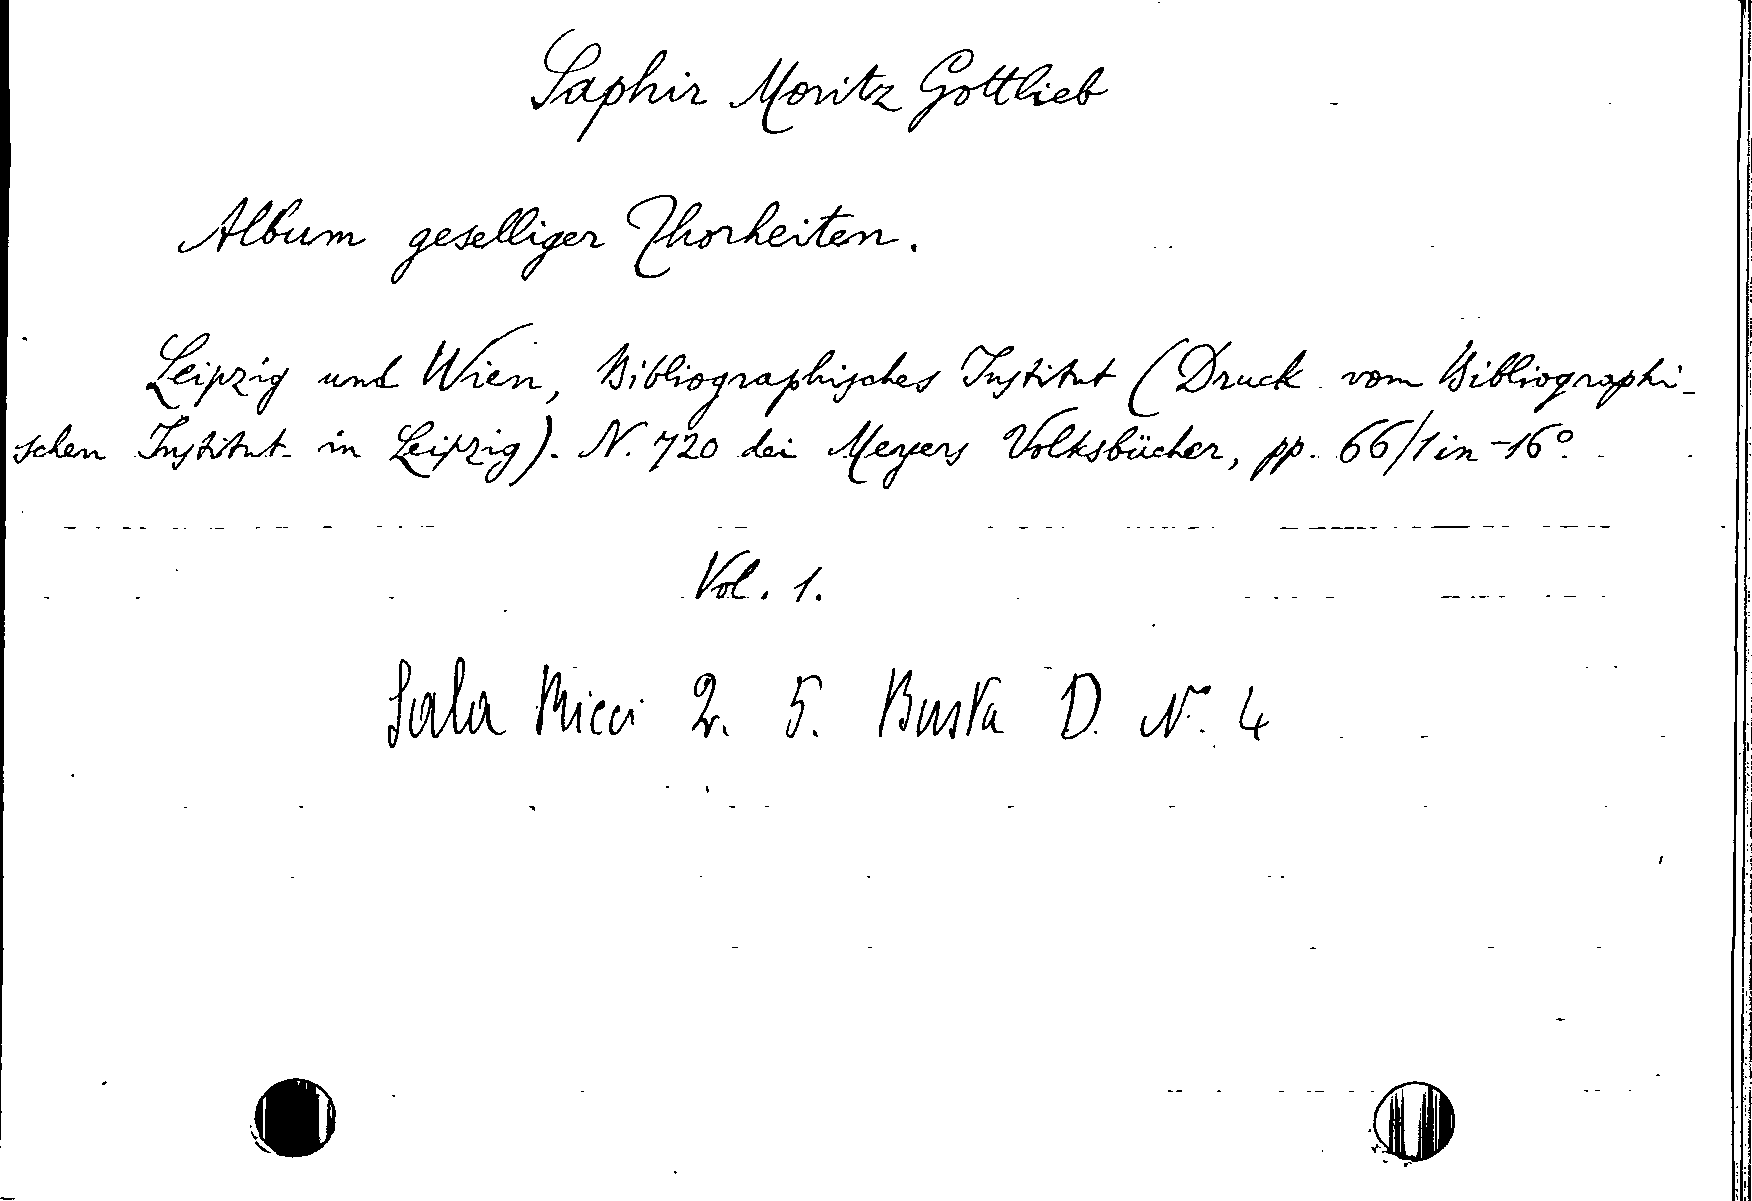 Saphir Moritz Gottlieb
Album geselliger Thorheiten.
Leipzig und Wien, Bibliographisches Institut (Druck vom Bibliographi-
schen Institut in Leipzig). N. 720 dei Meyers Volksbücher, pp. 66/1 in-16°.
Vol. 1.
Sala Ricci 2. 5. Busta D. N. 4